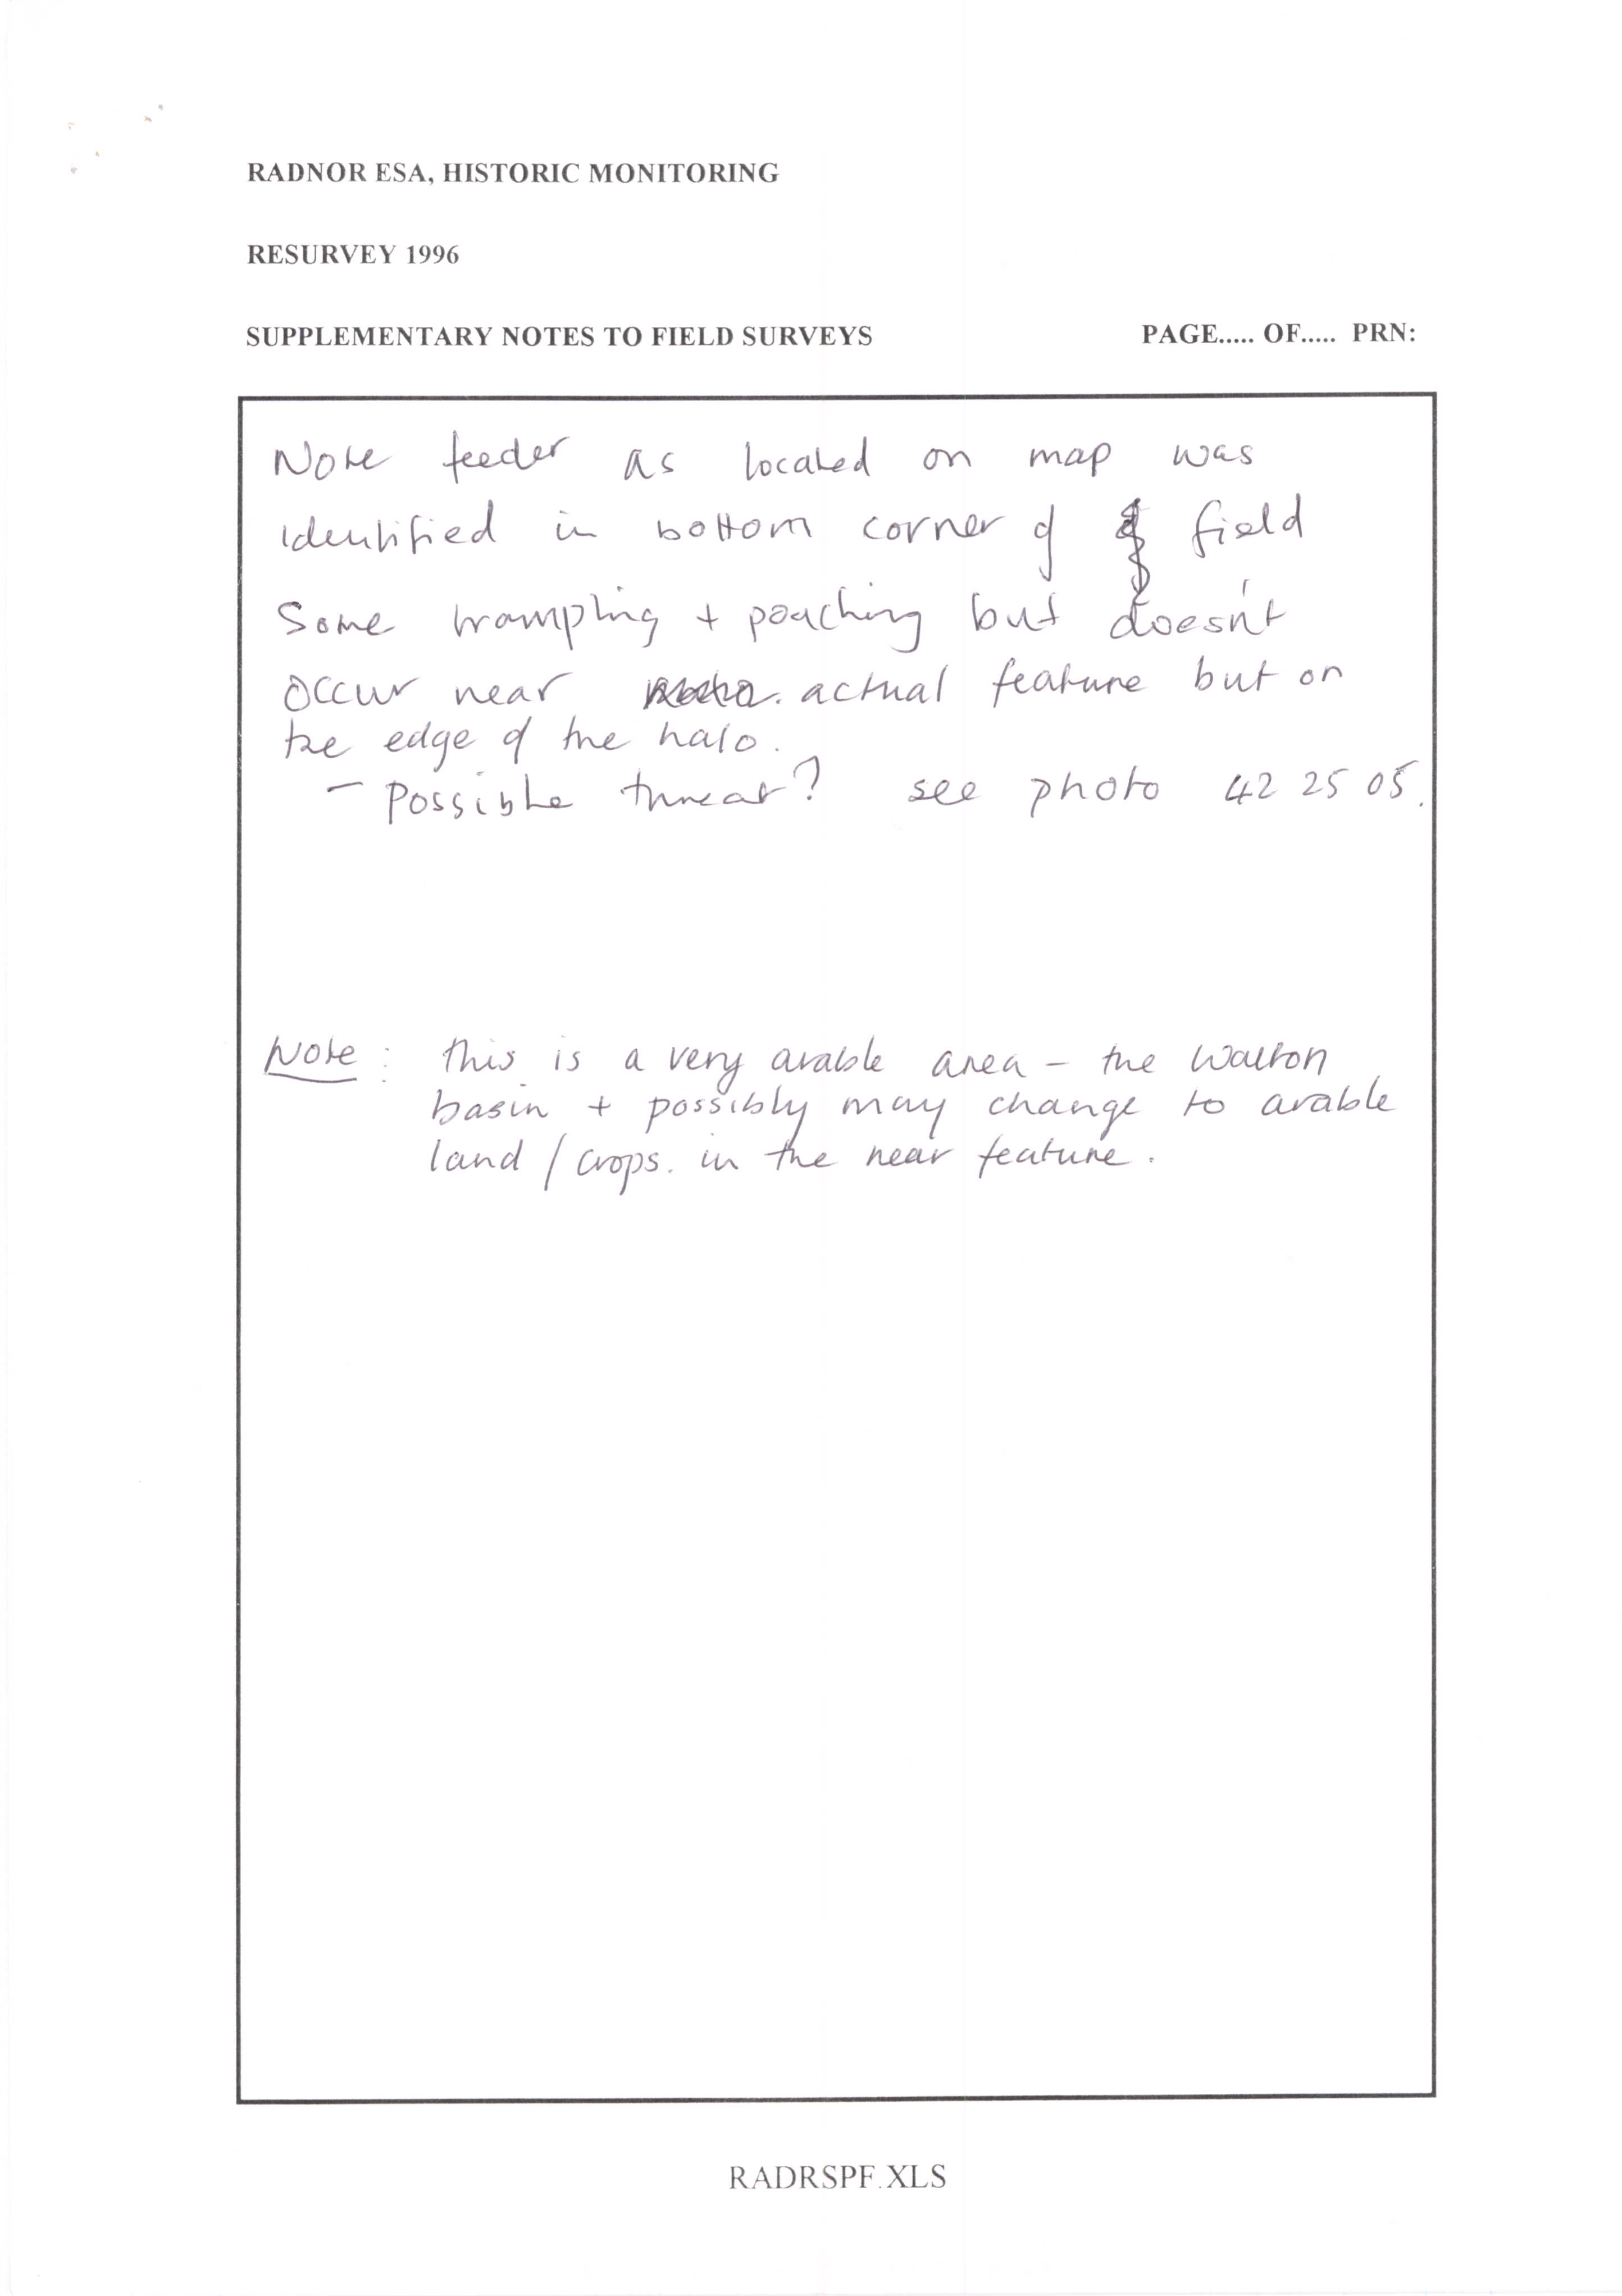 RADNOR ESA, HISTORIC MONITORING
RESURVEY 1996
SUPPLEMENTARY NOTES TO FIELD SURVEYS PAGE..... OF..... PRN:
Note feeder as located on map was
identified in bottom corner of field
Some trampling + poaching but doesn't
occur near actual feature but on
the edge of the halo.
- Possible threat? see photo 42 25 05.
Note: this is a very arable area - the Walton
basin + possibly may change to arable
land / crops. in the near feature.
RADRSPF.XLS